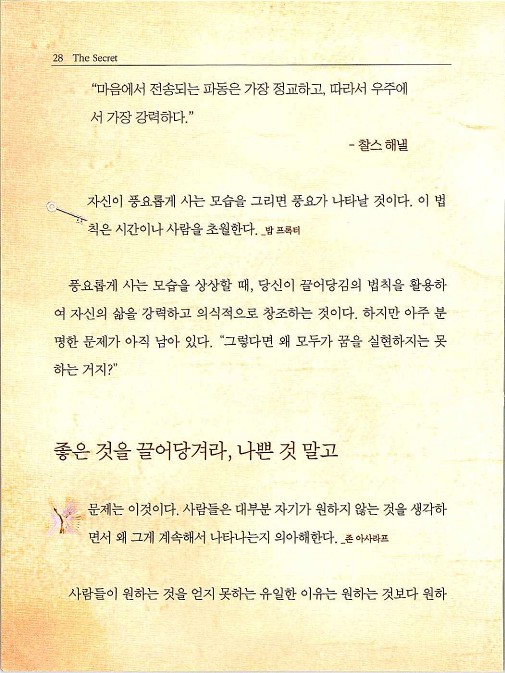 28 The Secret
“마음에서 전송되는 파동은 가장 정교하고, 따라서 우주에
서 가장 강력하다.”
- 찰스 해낼
자신이 풍요롭게 사는 모습을 그리면 풍요가 나타날 것이다. 이 법
칙은 시간이나 사람을 초월한다. _밥 프록터
풍요롭게 사는 모습을 상상할 때, 당신이 끌어당김의 법칙을 활용하
여 자신의 삶을 강력하고 의식적으로 창조하는 것이다. 하지만 아주 분
명한 문제가 아직 남아 있다. “그렇다면 왜 모두가 꿈을 실현하지는 못
하는 거지?”
좋은 것을 끌어당겨라, 나쁜 것 말고
문제는 이것이다. 사람들은 대부분 자기가 원하지 않는 것을 생각하
면서 왜 그게 계속해서 나타나는지 의아해한다. _존 아사라프
사람들이 원하는 것을 얻지 못하는 유일한 이유는 원하는 것보다 원하